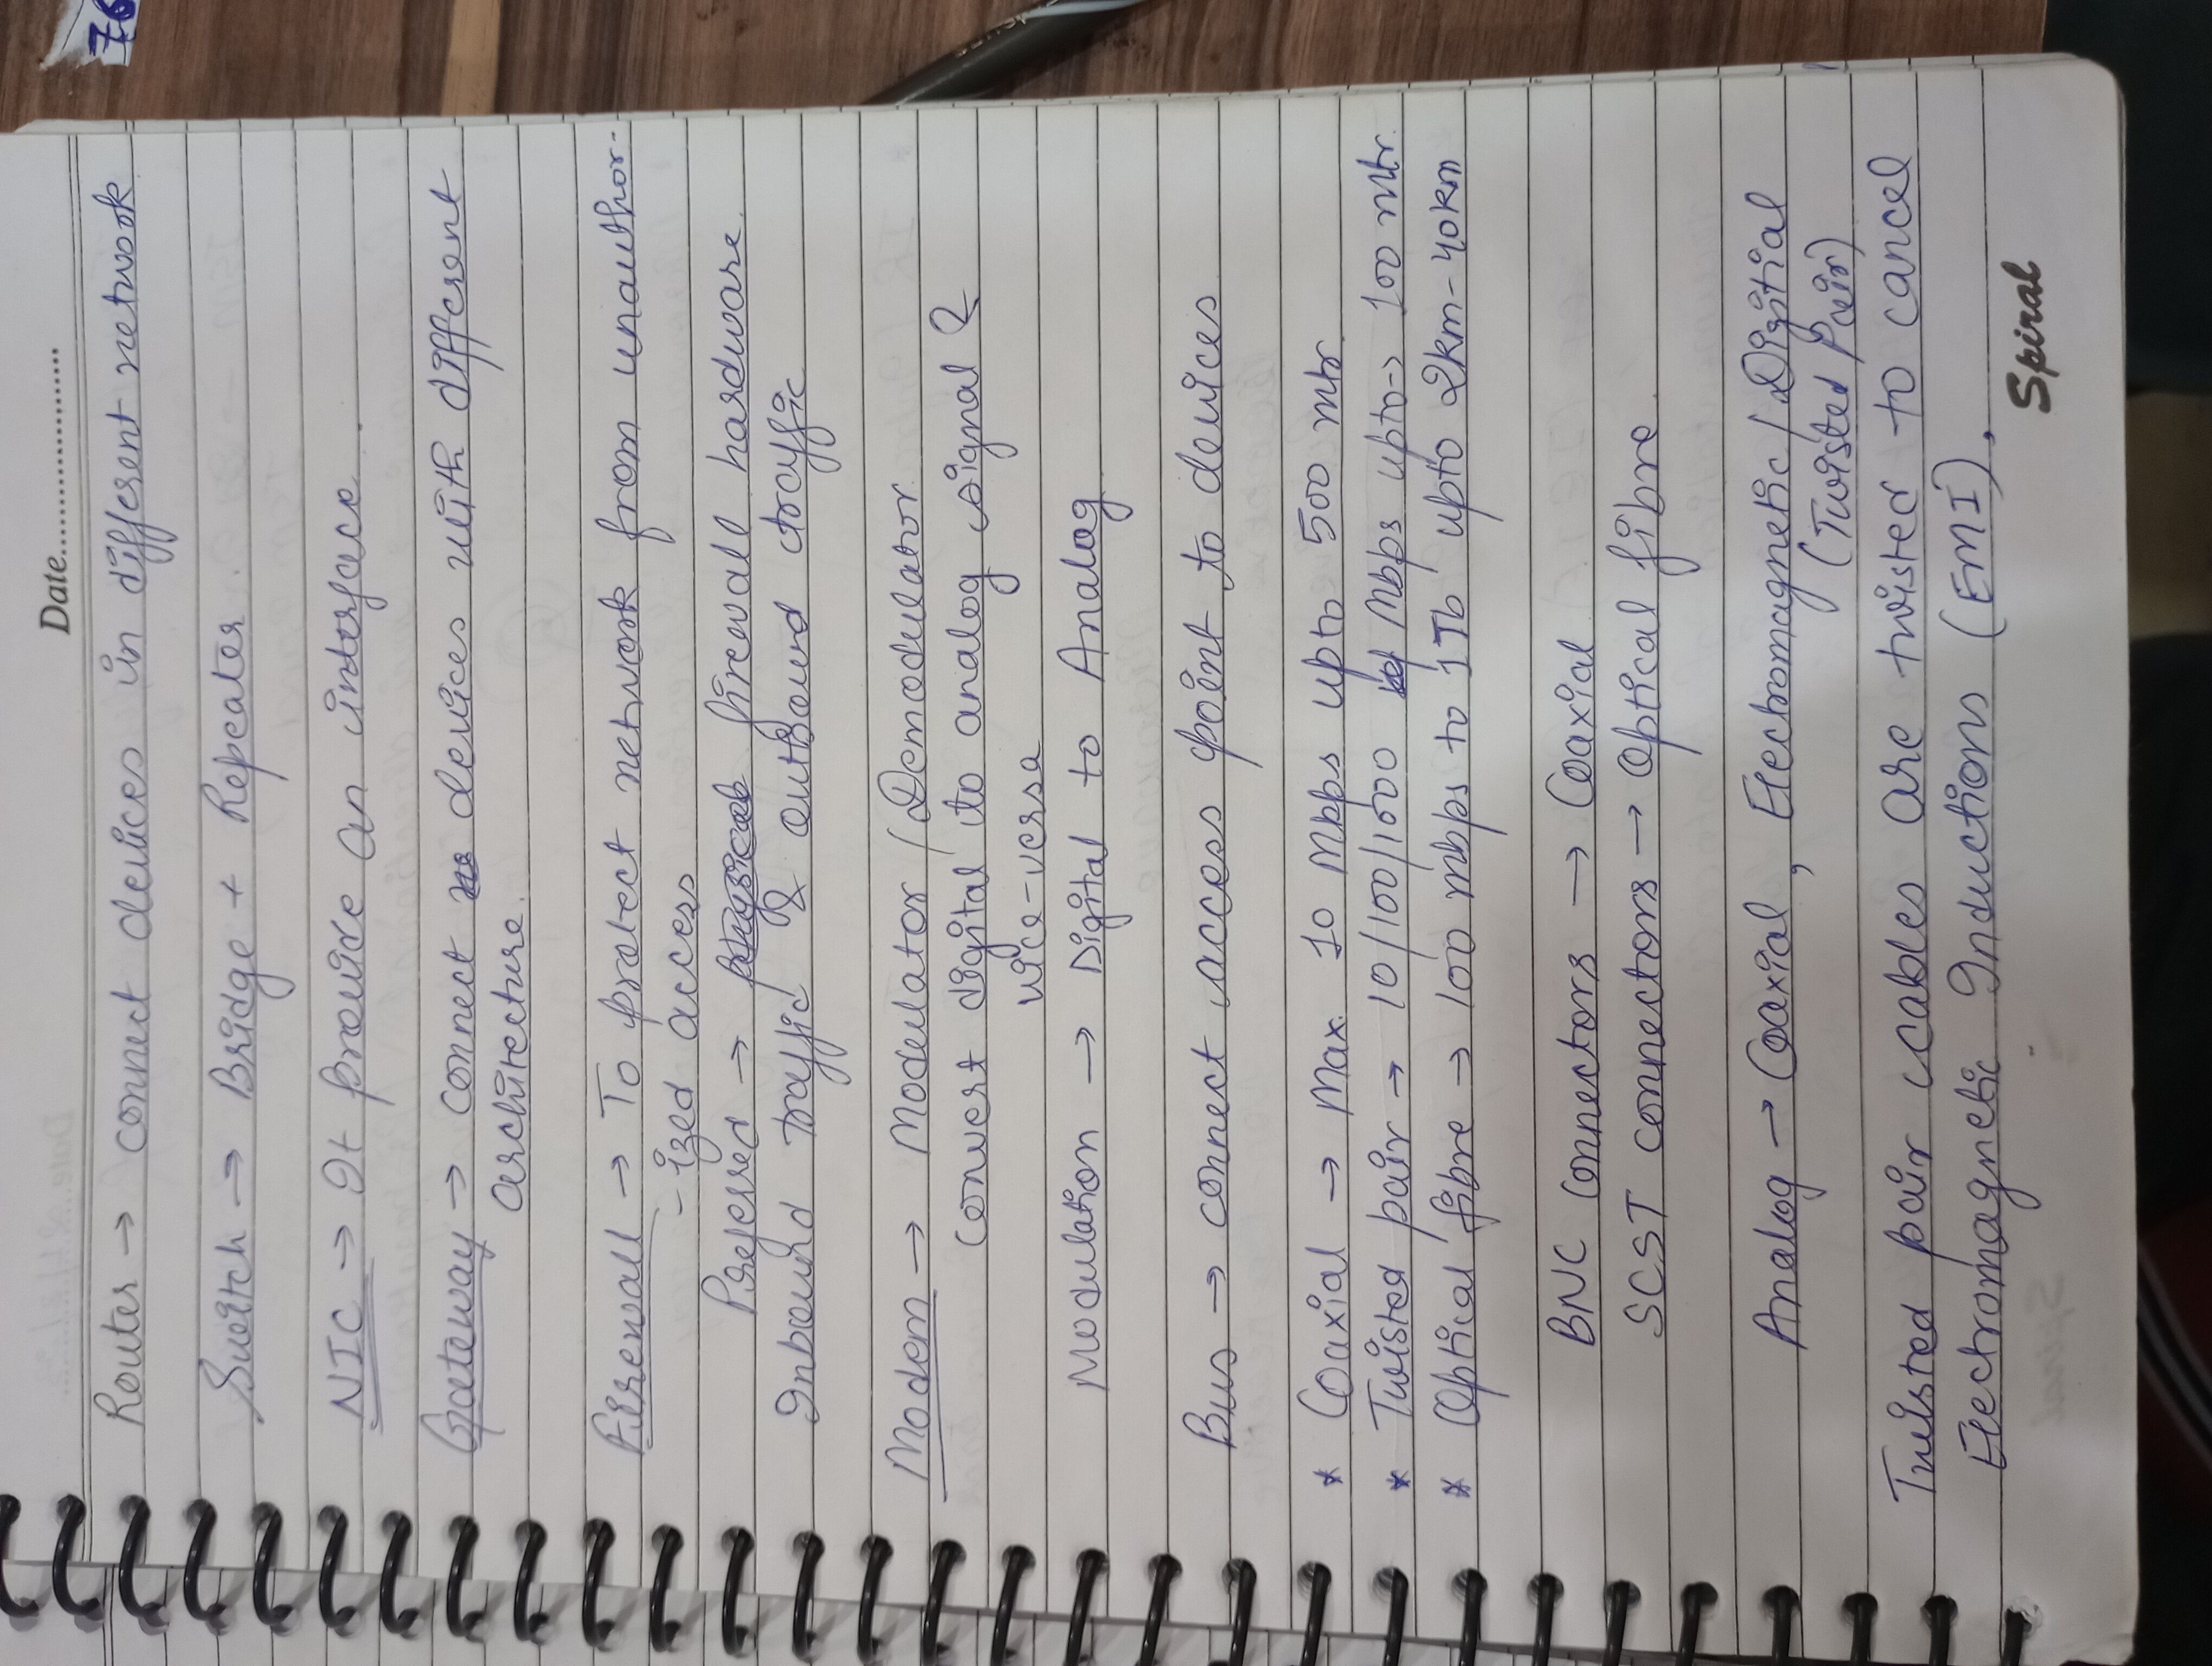 Date.....................
76
Router → connect devices in different network
Switch → Bridge + Repeater.
NIC → It provide an interface.
Gateway → connect devices with different
architecture.
Firewall → To protect network from unauthor-
-ized access
Preferred → physical firewall hardware.
Inbound traffic & outbound traffic
Modem → Modulator / Demodulator
convert digital to analog signal &
vice-versa
Modulation → Digital to Analog
Bus → connect access point to devices
* Coaxial → Max. 10 Mbps upto 500 mtr.
* Twisted pair → 10/100/1000 Mbps upto → 100 mtr.
* Optical fibre → 100 mbps to 1Tb upto 2km-40km
BNC connectors → Coaxial
SCST connectors → Optical fibre.
Analog → Coaxial, Electromagnetic / Digitial
(Twisted Pair)
Twisted pair cables are twisted to cancel
Electromagnetic Inductions (EMI).
Spiral